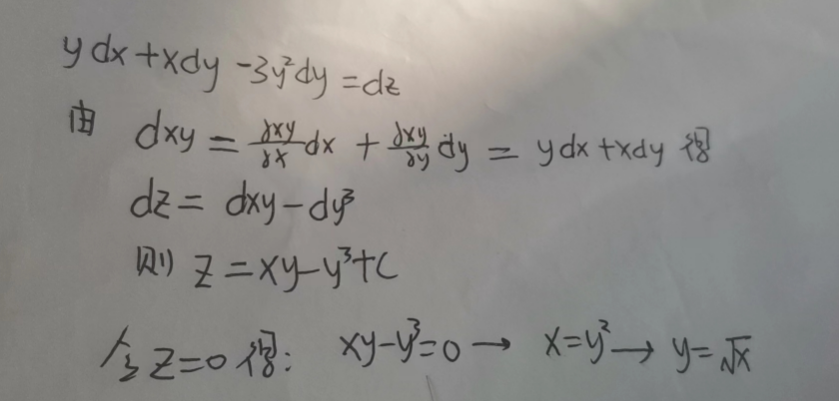 ydx+xdy-3y²dy=dz
由 dxy=∂xy/∂x dx+∂xy/∂y dy=ydx+xdy 得
dz=dxy-dy³
则 z=xy-y³+C
令z=0得: xy-y³=0→ x=y²→ y=√x